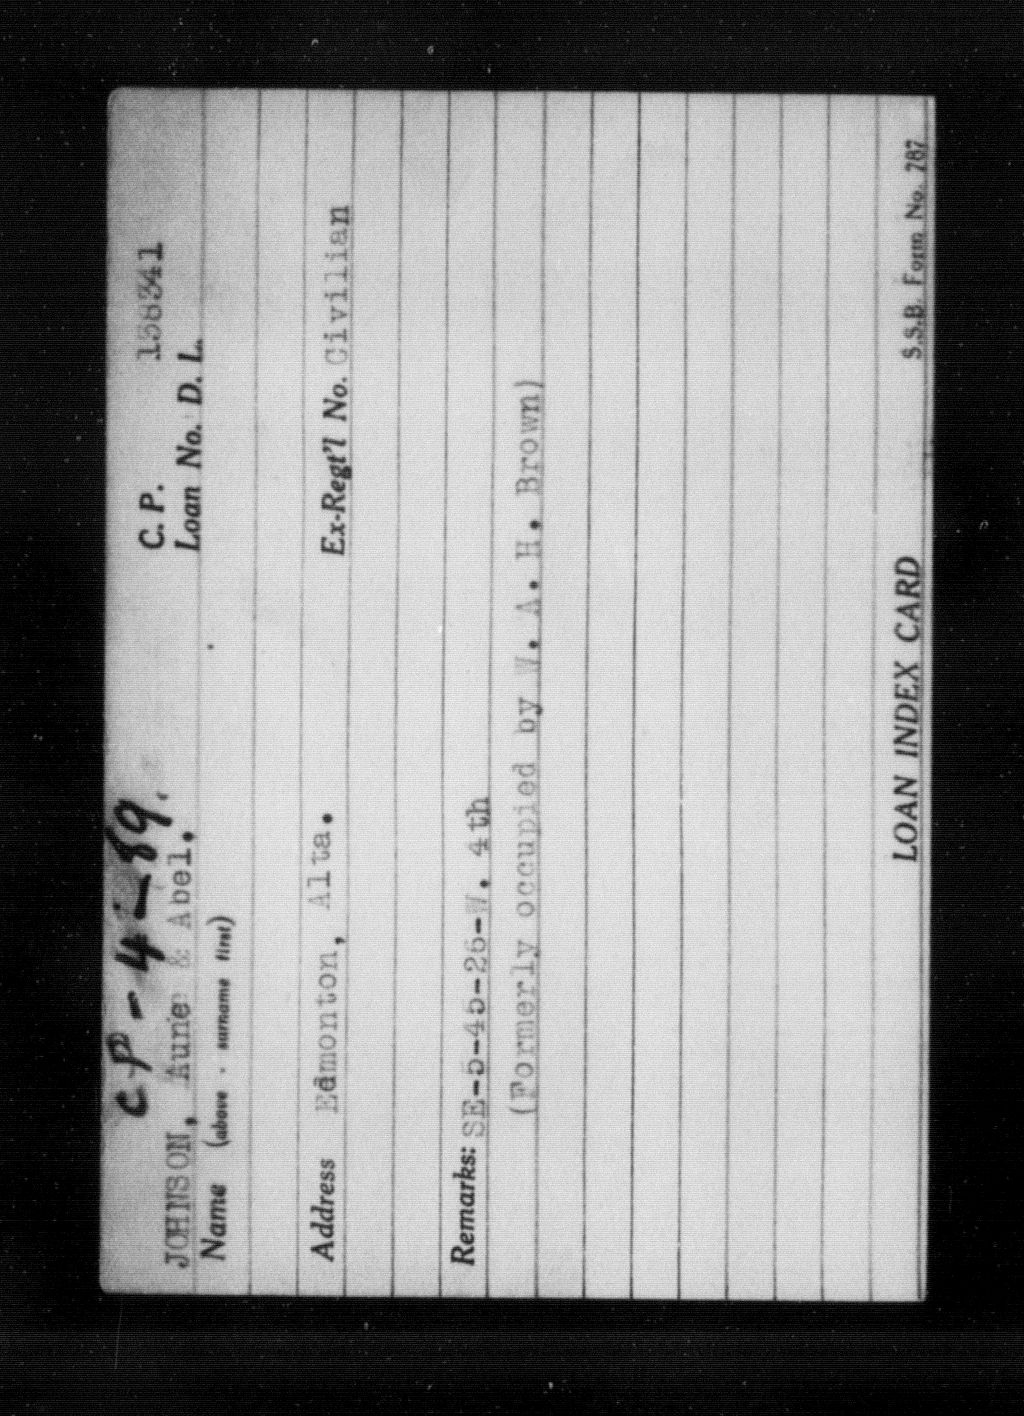 CP-4-89.
JOHNSON, Aune & Abel. C. P.
Name (above - surname first) Loan No. D. L.
Address Edmonton, Alta. Ex-Regt'l No. Civilian
Remarks: SE-5-45-26-W. 4th
(Formerly occupied by W. A. H. Brown)
LOAN INDEX CARD S.S.B. Form No. 787